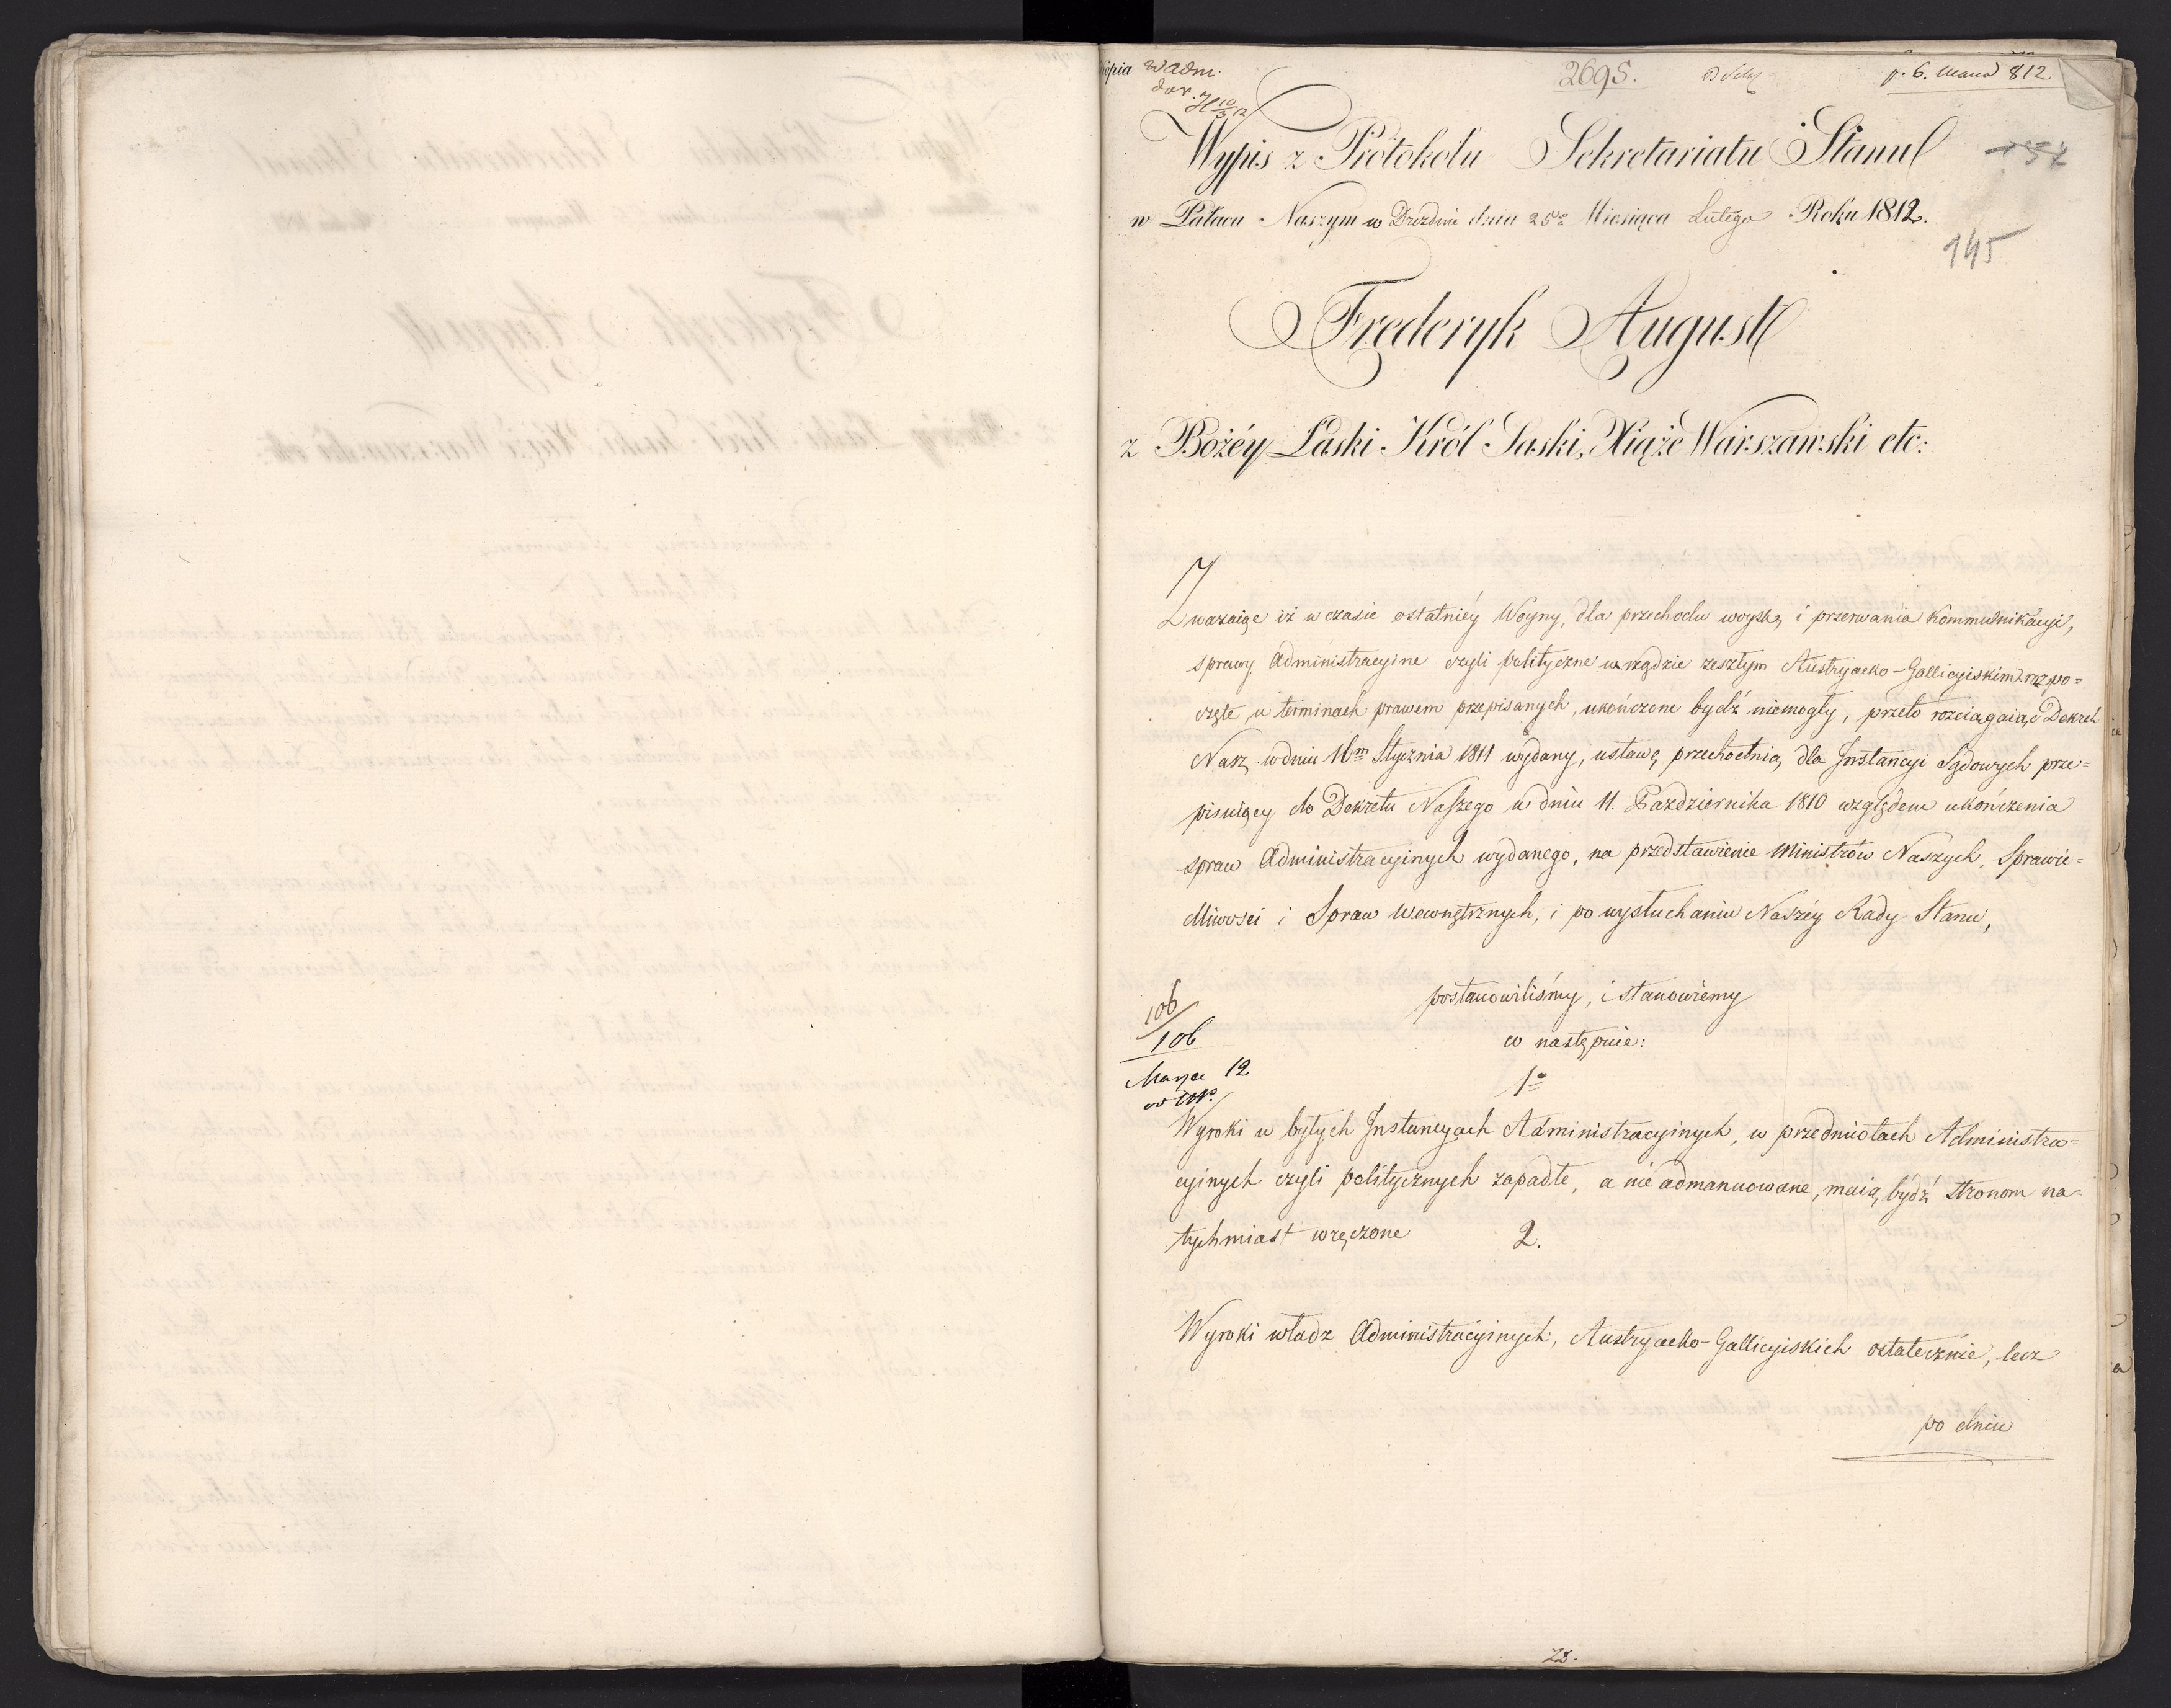 kopia w adm.
2695.
p. 6. Marca 812
Wypis z Protokołu Sekretariatu Stanu
w Pałacu Naszym w Dreźdnie dnia 25go Miesiąca Lutego Roku 1812.
145
Frederyk August
z Bożéy Łaski Król Saski, Xiąże Warszawski etc:
Zważaiąc iż w czasie ostatniéy Woyny, dla przechodu woysk, i przerwania Kommunikacyi,
sprawy Administracyine czyli polityczne w rządzie zeszłym Austryacko-Gallicyiskim rozpo=
częte, w terminach prawem przepisanych, ukończone bydź niemogły, przeto rozciągaiąc Dekret
Nasz, w dniu 16m Stycznia 1811 wydany, ustawę przechodnią dla Instancyi Sądowych prze=
pisuiący do Dekretu Naszego w dniu 11. Października 1810 względem ukończenia
spraw Administracyinych wydanego, na przedstawienie Ministrów Naszych, Sprawie=
dliwości i Spraw Wewnętrznych, i po wysłuchaniu Naszéy Rady Stanu,
postanowiliśmy, i stanowiemy
co następuie:
106
106
Marca 12
1o
Wyroki w byłych Instancyach Administracyinych, w przedmiotach Administra=
cyinych czyli politycznych zapadłe, a nie admanuowane, maią bydź stronom na=
tychmiast wręczone
2.
Wyroki władz Administracyinych, Austryacko-Gallicyiskich ostatecznie, lecz
po dniu
22.